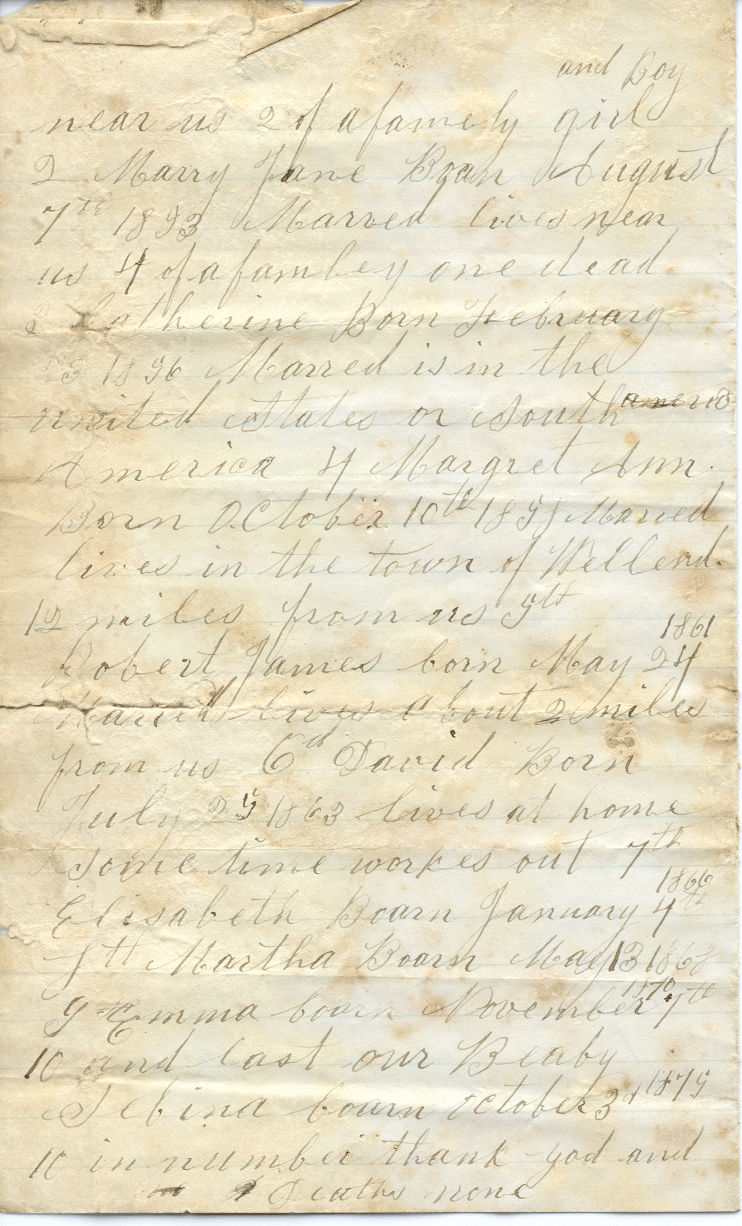 and Boy
near us 2 of a famely girl
2 Marry Jane Boan August
7th 1853 Marred lives near
us 4 of a famley one dead
3 Catherine Born February
23 1856 Marred is in the
united States or South
America 4 Margret Ann
Born October 10th 1858 Maried
lives in the town of Wellend
12 miles from us 5th
1861
Robert James born May 24
Maried lives about 2 miles
from us 6d David Born
July 25 1863 lives at home
Some time workes out 7th
1866
Elisabeth Boarn January 4th
8th Martha Boarn May 13 1868
1870
9th Emma boarn November 7th
10 and last our Beaby
Selina bourn October 3d 1875
10 in number thank god and
Deaths none